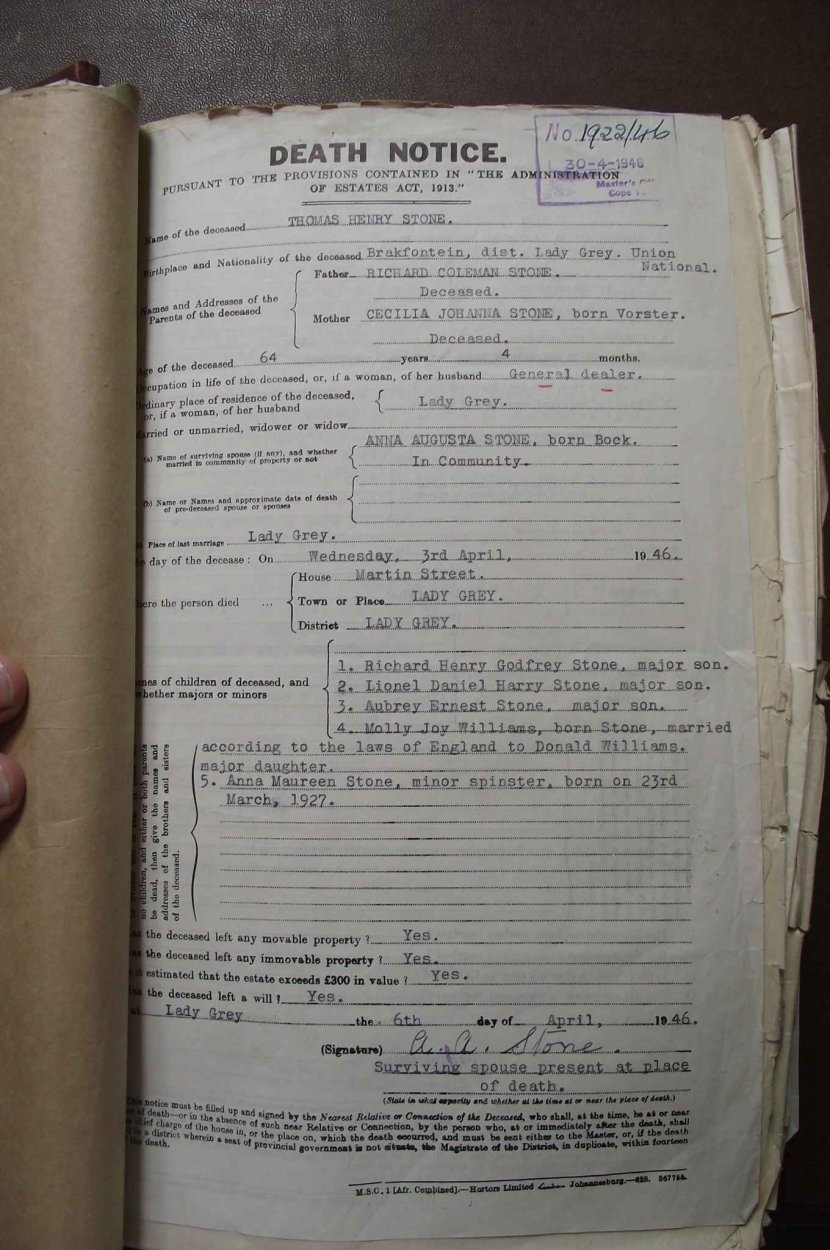 No 1922/46
30-4-1946
Master's
Cope
DEATH NOTICE.
PURSUANT TO THE PROVISIONS CONTAINED IN "THE ADMINISTRATION
OF ESTATES ACT, 1913."
Name of the deceased THOMAS HENRY STONE.
Birthplace and Nationality of the deceased Brakfontein, dist. Lady Grey. Union
National.
Names and Addresses of the
Parents of the deceased
Father RICHARD COLEMAN STONE.
Deceased.
Mother CECILIA JOHANNA STONE, born Vorster.
Deceased.
Age of the deceased 64 years 4 months.
Occupation in life of the deceased, or, if a woman, of her husband General dealer.
Ordinary place of residence of the deceased,
or, if a woman, of her husband
Lady Grey.
Married or unmarried, widower or widow
(a) Name of surviving spouse (if any), and whether
married in community of property or not
ANNA AUGUSTA STONE, born Bock.
In Community.
(b) Name or Names and approximate date of death
of pre-deceased spouse or spouses
Place of last marriage Lady Grey.
day of the decease: On Wednesday, 3rd April, 1946.
here the person died ...
House Martin Street.
Town or Place LADY GREY.
District LADY GREY.
mes of children of deceased, and
whether majors or minors
1. Richard Henry Godfrey Stone, major son.
2. Lionel Daniel Harry Stone, major son.
3. Aubrey Ernest Stone, major son.
4. Molly Joy Williams, born Stone, married
according to the laws of England to Donald Williams.
major daughter.
5. Anna Maureen Stone, minor spinster, born on 23rd
March, 1927.
no children, and either or both parents
be dead, then give the names and
addresses of the brothers and sisters
of the deceased.
as the deceased left any movable property? Yes.
as the deceased left any immovable property? Yes.
it estimated that the estate exceeds £300 in value? Yes.
as the deceased left a will? Yes.
at Lady Grey the 6th day of April, 1946.
(Signature) A. A. Stone.
Surviving spouse present at place
of death.
(State in what capacity and whether at the time at or near the place of death.)
This notice must be filled up and signed by the Nearest Relative or Connection of the Deceased, who shall, at the time, be at or near
of death—or in the absence of such near Relative or Connection, by the person who, at or immediately after the death, shall
chief charge of the house in, or the place on, which the death occurred, and must be sent either to the Master, or, if the death
in a district wherein a seat of provincial government is not situate, the Magistrate of the District, in duplicate, within fourteen
the death.
M.S.C. 1 [Afr. Combined].—Hortors Limited Johannesburg.—628. 36776b.